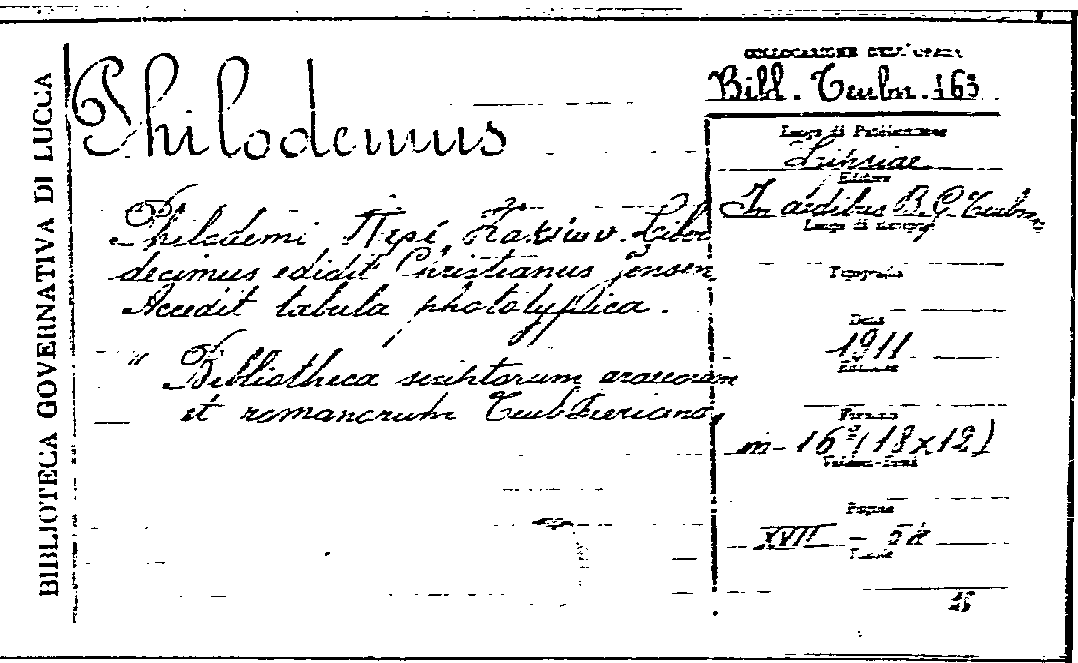 BIBLIOTECA GOVERNATIVA DI LUCCA
Philodemus
Philodemi Περὶ Κακιῶν Liber
decimus edidit Christianus Jensen
Accedit tabula phototypica.
" Bibliotheca scriptorum graecorum
et romanorum Teubneriana,
COLLOCAZIONE DELL'OPERA
Bibl. Teubn. 163
Luogo di Pubblicazione
Lipsiae
Editore
In aedibus B. G. Teubn
Luogo di Stampa
Tipografia
Data
1911
Edizione
Formato
in-16° (18x12)
Volumi-Tomi
Pagine
XVII -
Tavole